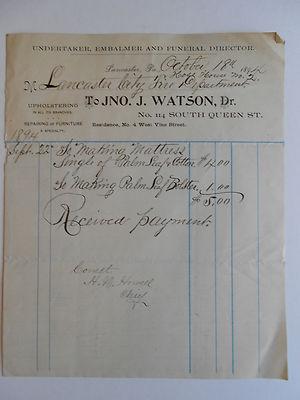 UNDERTAKER, EMBALMER AND FUNERAL DIRECTOR.
Lancaster, Pa. October 18th 1894
Hose House No. 2.
M Lancaster City Fire Department
UPHOLSTERING
IN ALL ITS BRANCHES.
REPAIRING OF FURNITURE
A SPECIALTY.
To JNO. J. WATSON, Dr.
No. 114 SOUTH QUEEN ST.
Residence, No. 4 West Vine Street.
1894
Sept. 22 To Making Mattress
Single of Palm Leaf & Cotton $ 4.00
To Making Palm Leaf Bolster 1.00
$ 5.00
Received payment
Correct
H. N. Howell
Chief